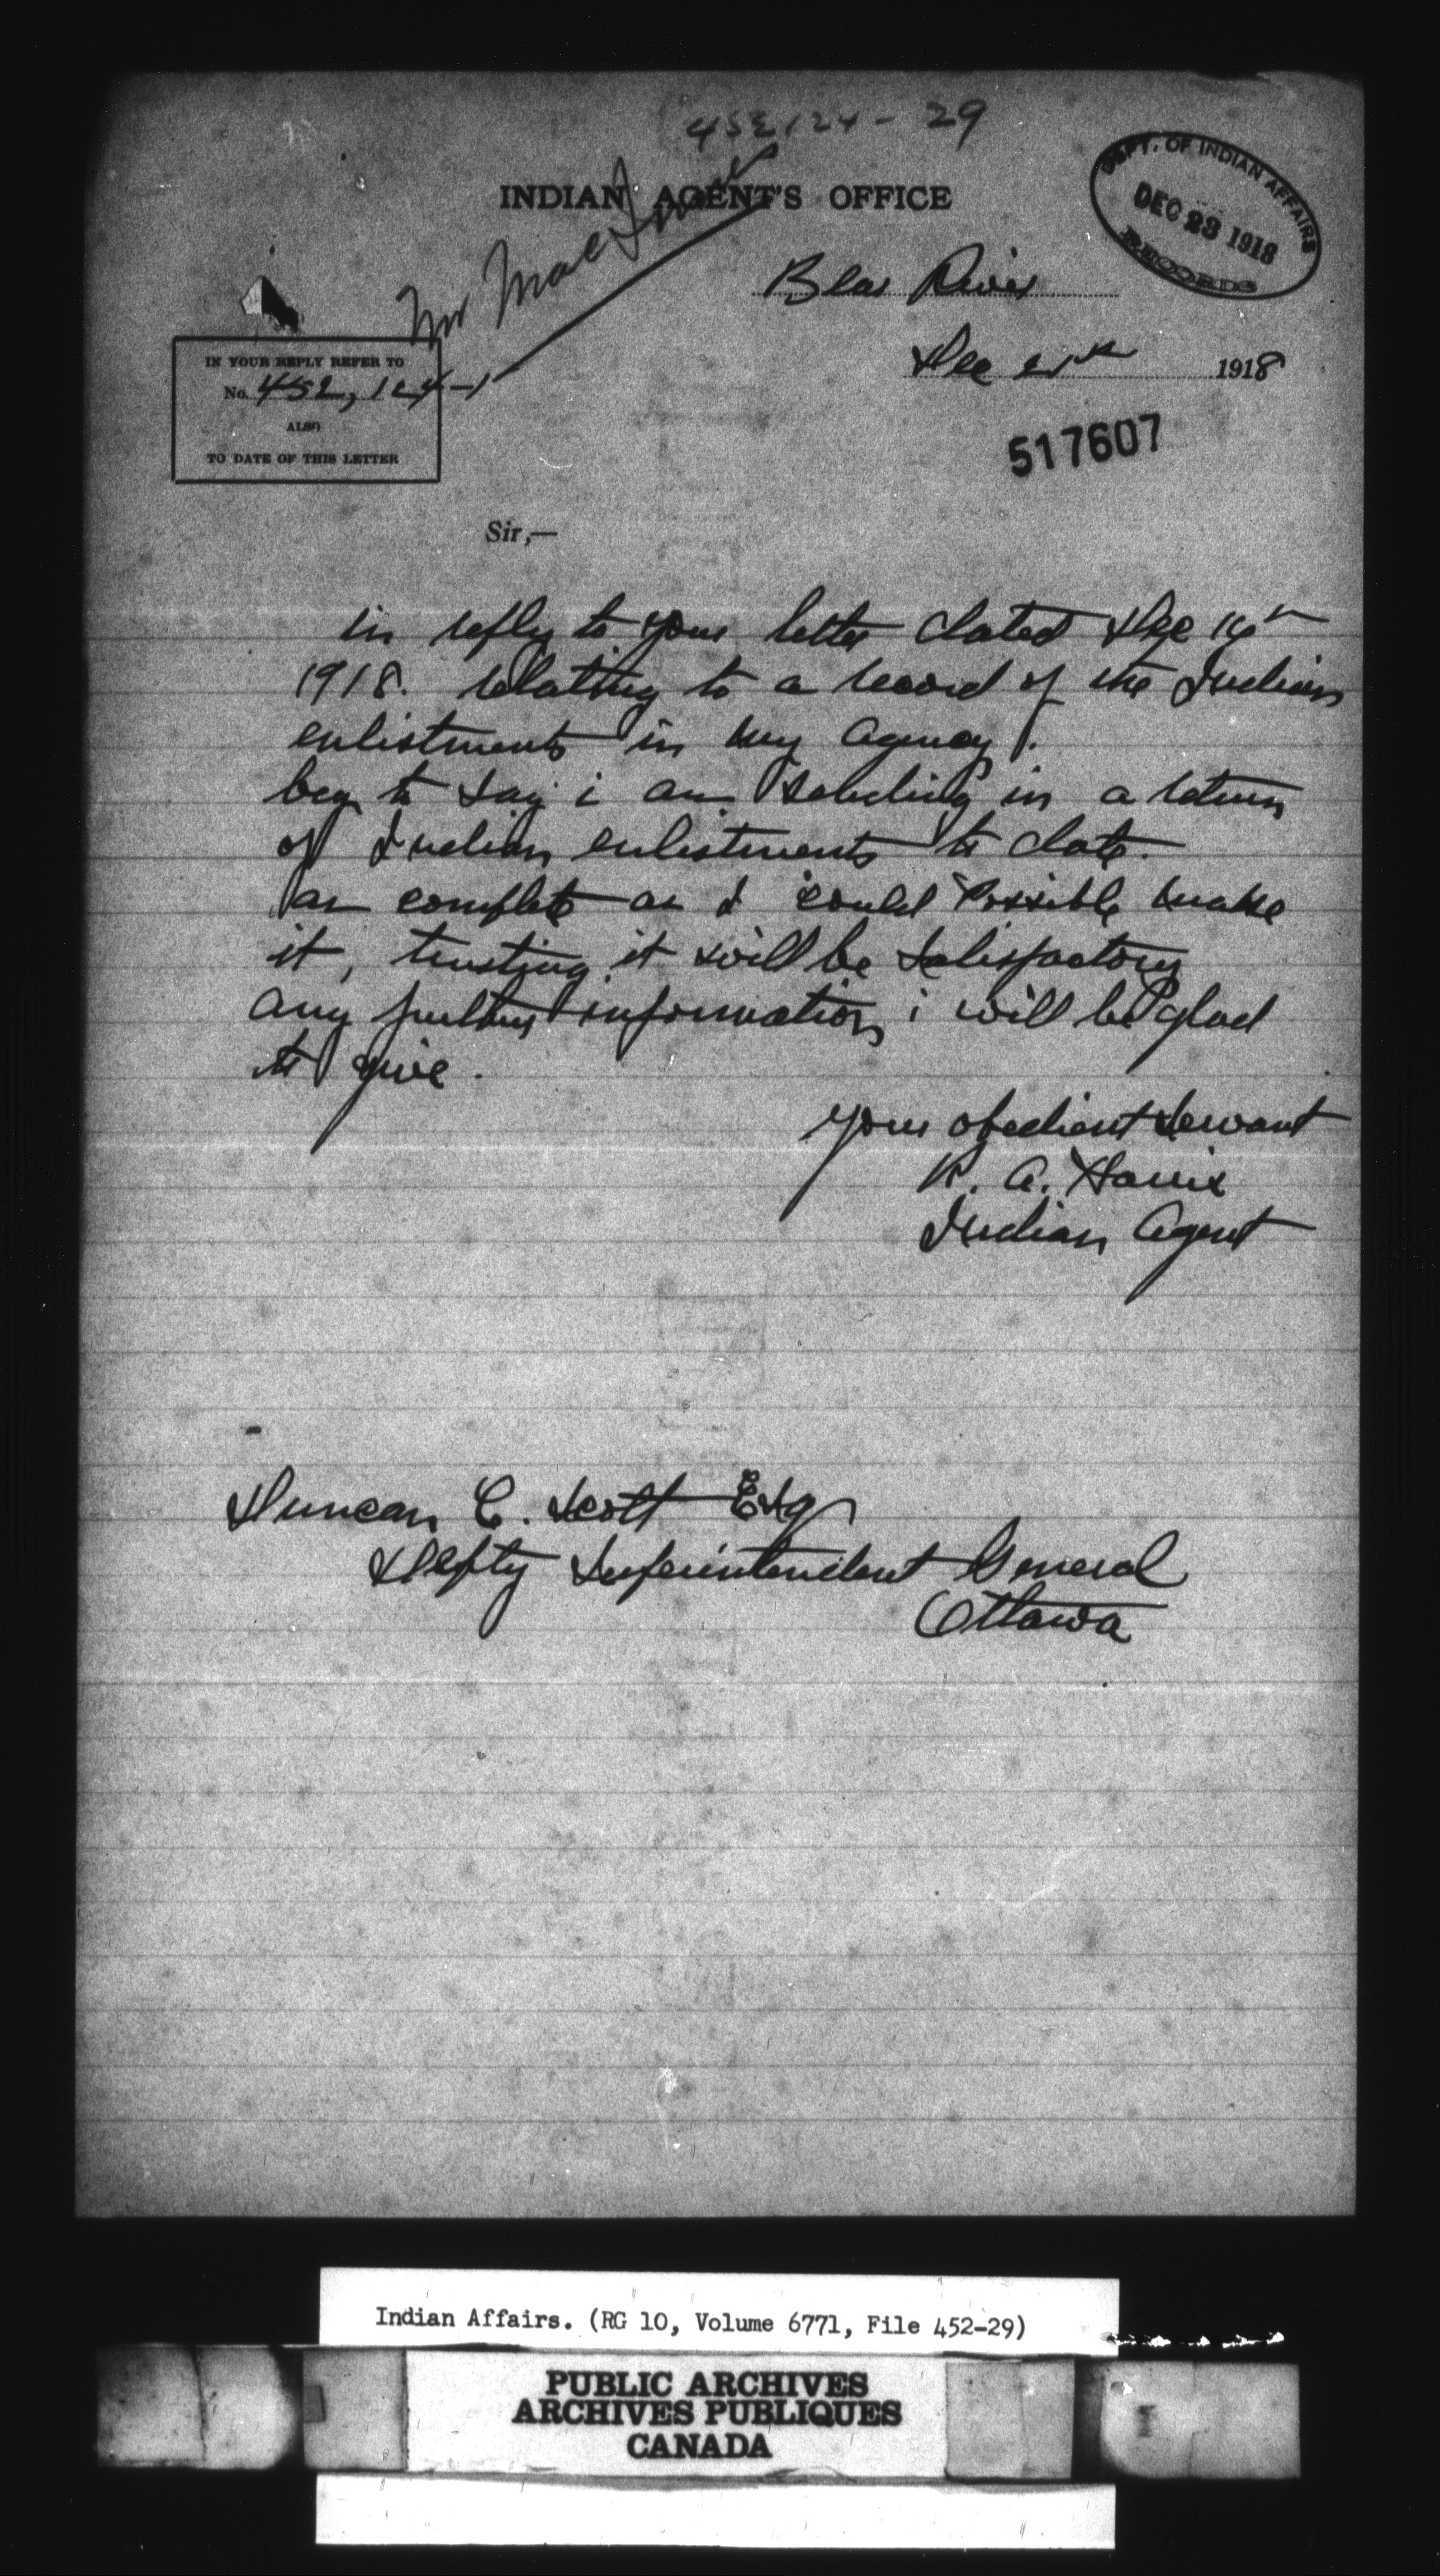 452124-29
INDIAN AGENT'S OFFICE
DEPT. OF INDIAN AFFAIRS
DEC 23 1918
RECORDS
Bear River
Dec 21st 1918
IN YOUR REPLY REFER TO
No. 452,124-1
ALSO
TO DATE OF THIS LETTER
517607
Sir,—
in reply to your letter dated Dec
1918. relating to a record of the Indian
enlistments in my agency.
beg to say i am sending in a return
of Indian enlistments to date.
as complete as I could Possible make
it, trusting it will be satisfactory
any further information i will be glad
to give.
your obedient servant
Indian Agent
Duncan C. Scott Esq
Depty Superintendent General
Ottawa
Indian Affairs. (RG 10, Volume 6771, File 452-29)
PUBLIC ARCHIVES
ARCHIVES PUBLIQUES
CANADA